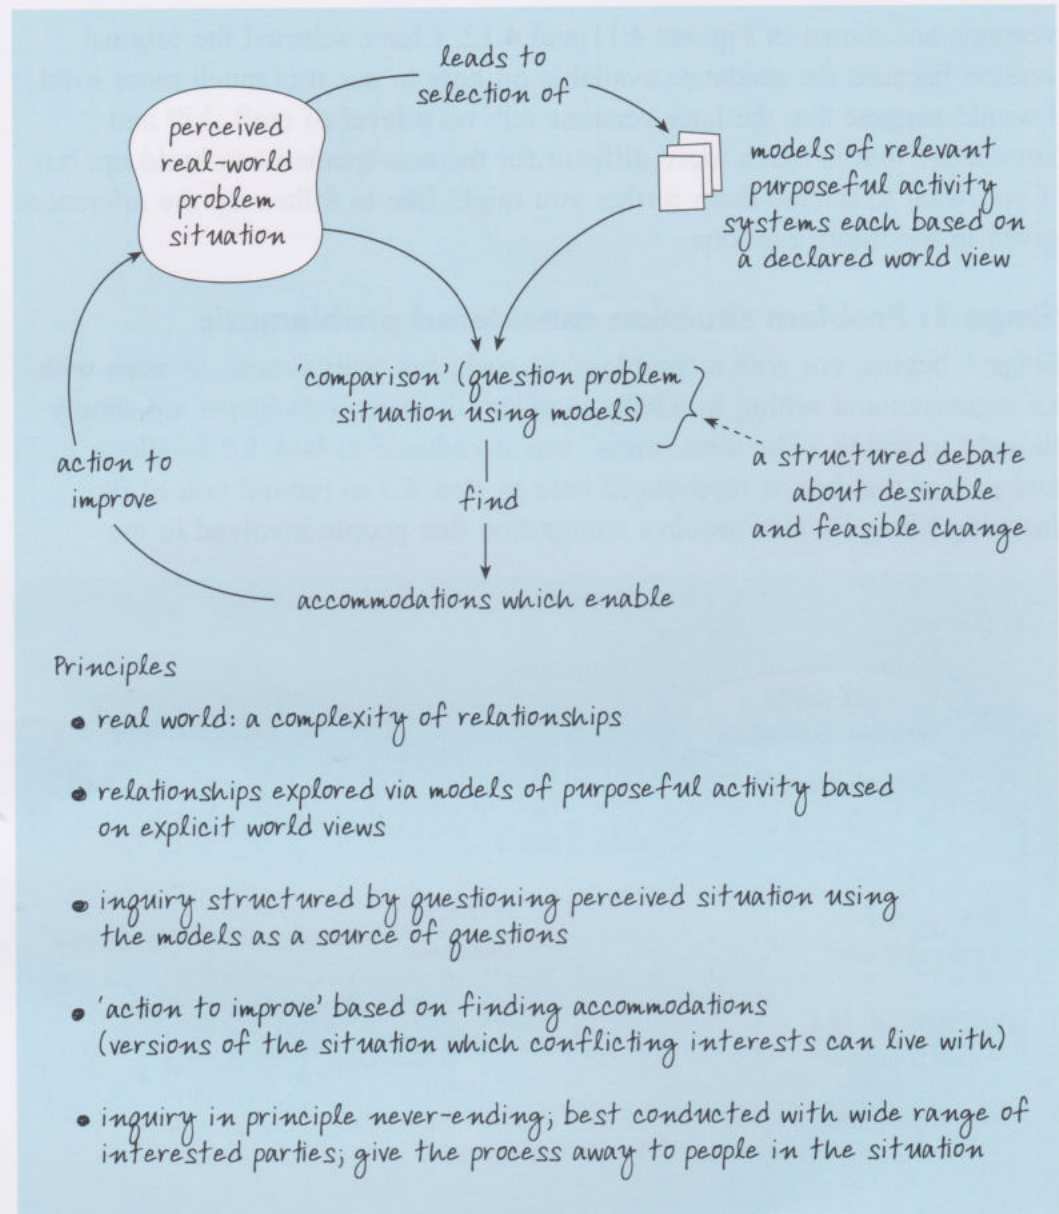 leads to
selection of
perceived
real-world
problem
situation
models of relevant
purposeful activity
systems each based on
a declared world view
'comparison' (question problem
situation using models)
action to
improve
find
a structured debate
about desirable
and feasible change
accommodations which enable
Principles
• real world: a complexity of relationships
• relationships explored via models of purposeful activity based
on explicit world views
• inquiry structured by questioning perceived situation using
the models as a source of questions
• 'action to improve' based on finding accommodations
(versions of the situation which conflicting interests can live with)
• inquiry in principle never-ending; best conducted with wide range of
interested parties; give the process away to people in the situation